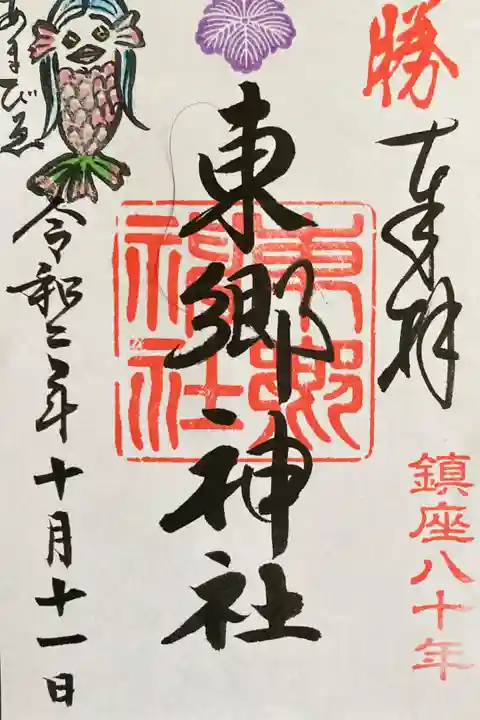 勝
奉拝
鎮座八十年
東郷神社
東郷
神社
あまびゑ
令和二年十月十一日